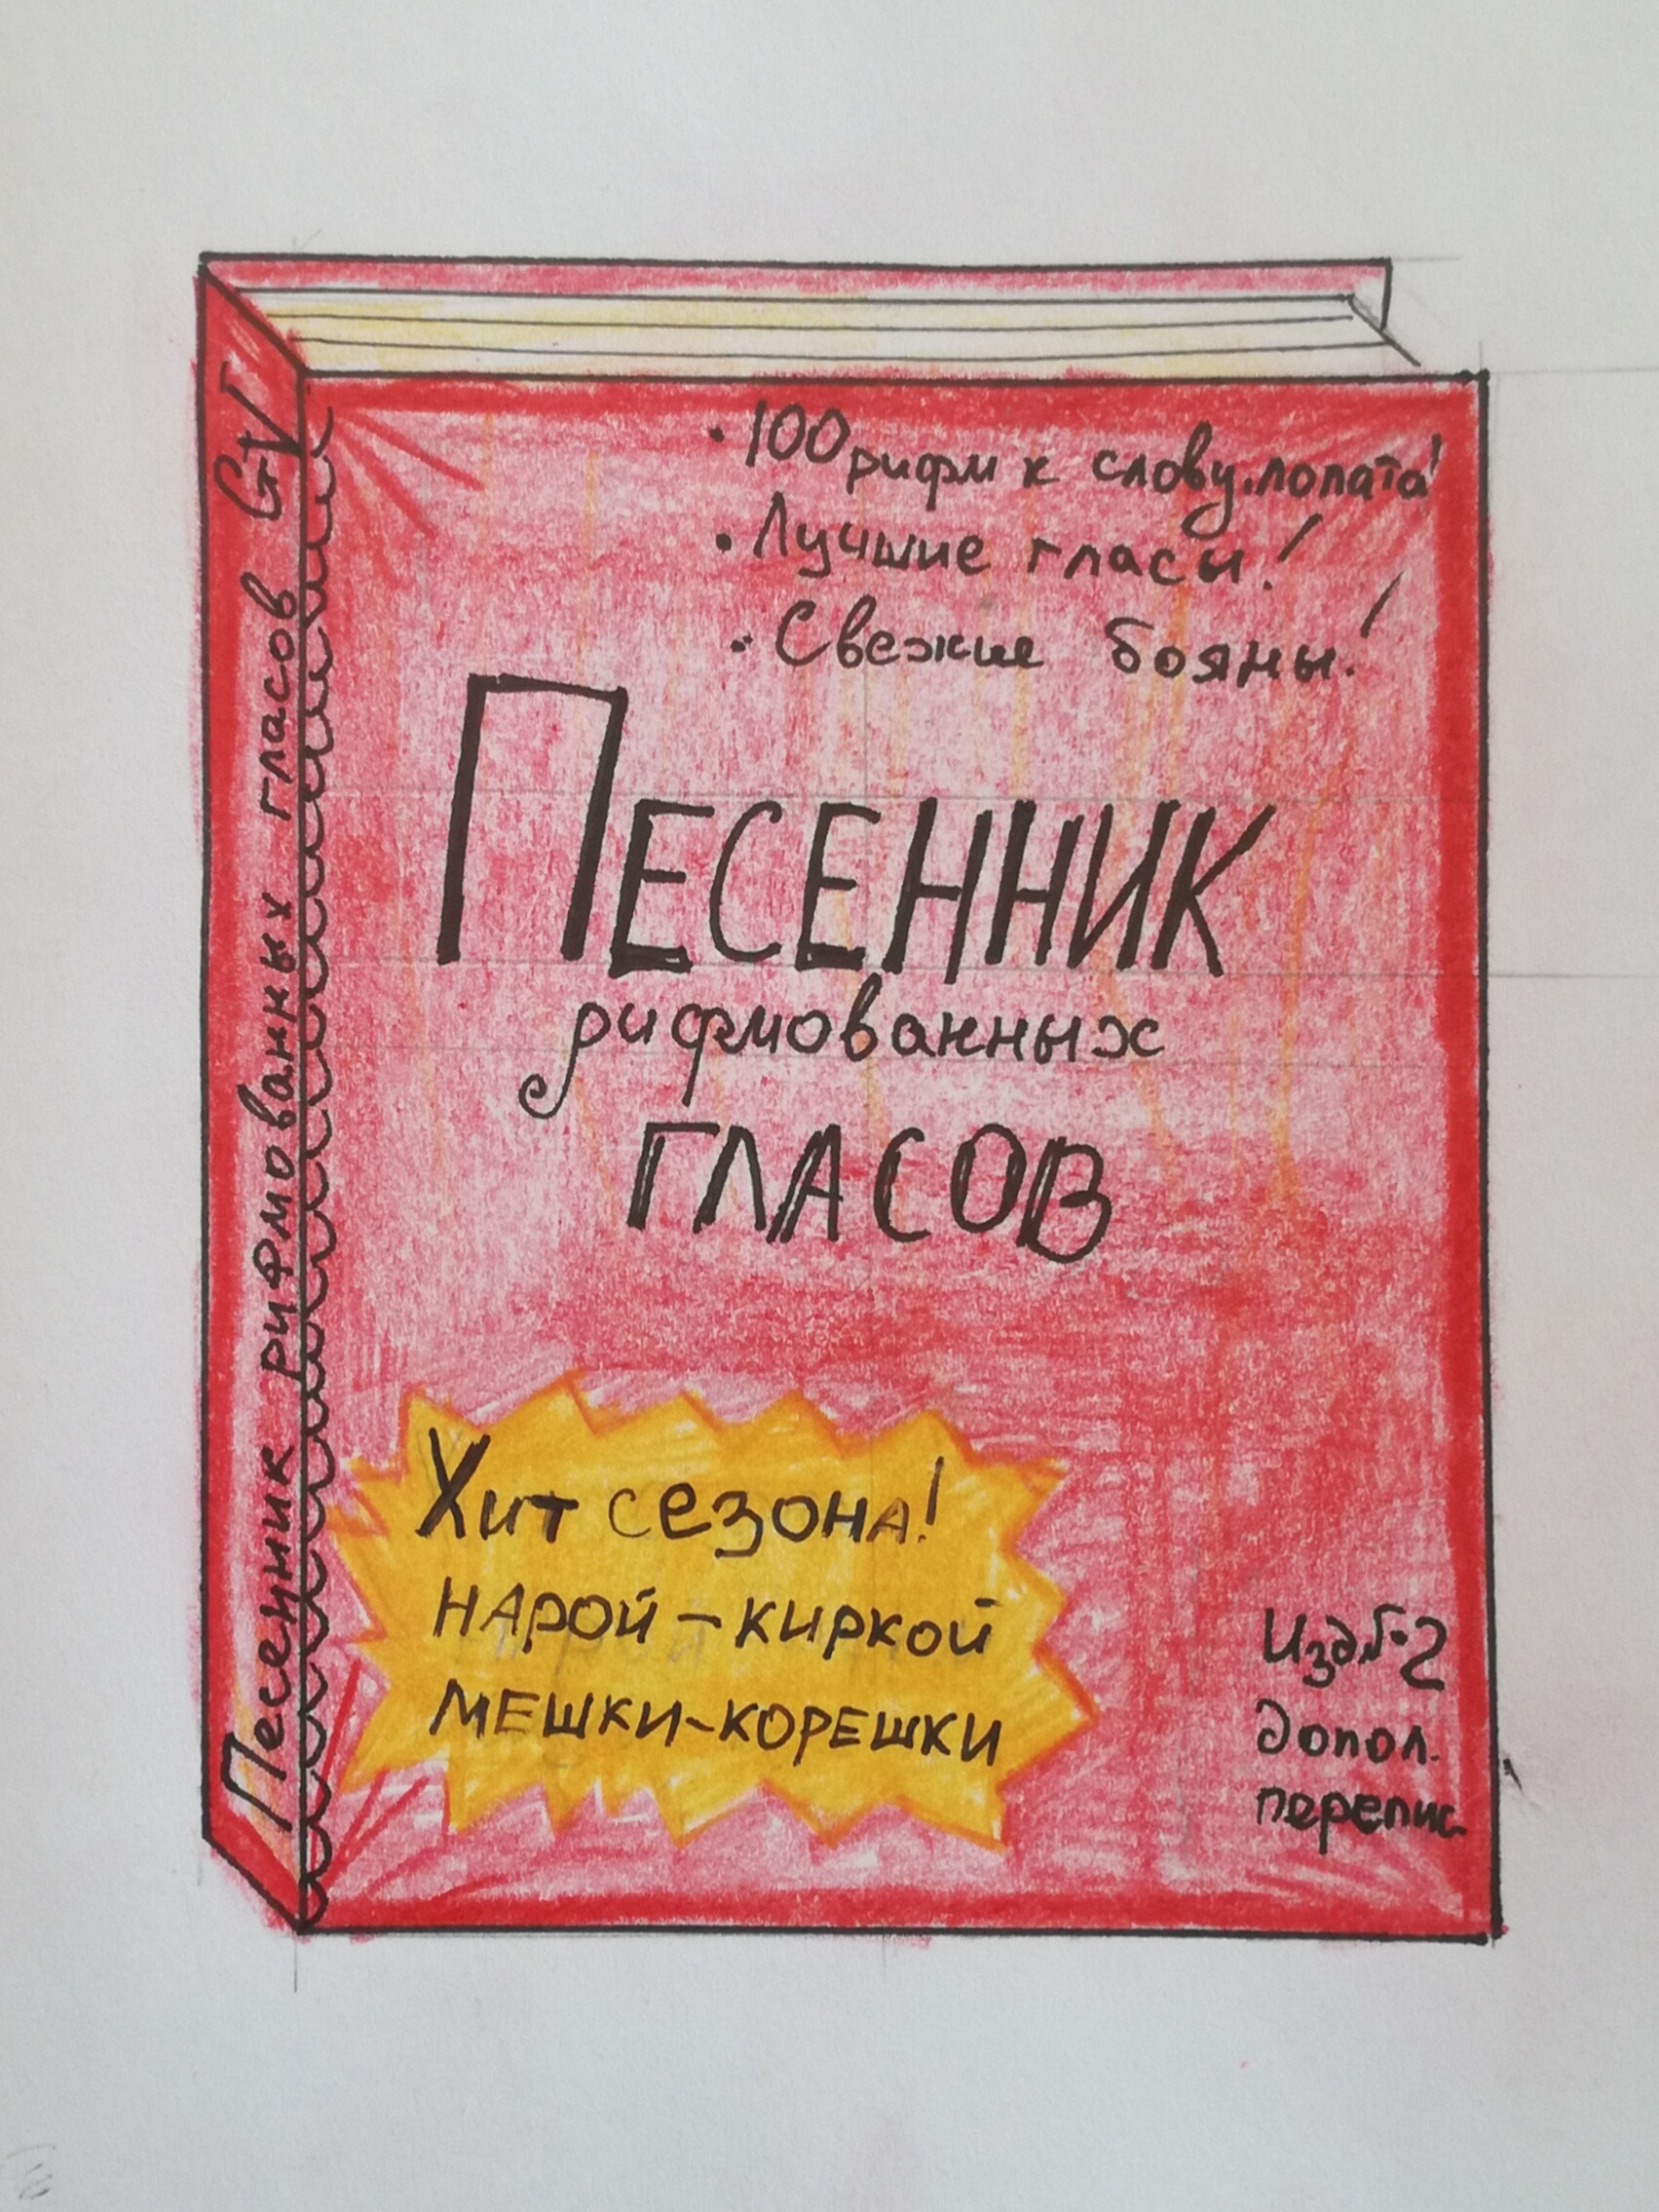 Песенник рифмованных гласов GV
· 100 рифм к слову лопата!
· Лучшие гласы!
· Свежие бояны!
ПЕСЕННИК
рифмованных
ГЛАСОВ
Хит сезона!
НАРОЙ-КИРКОЙ
МЕШКИ-КОРЕШКИ
Изд№2
допол.
перепис.